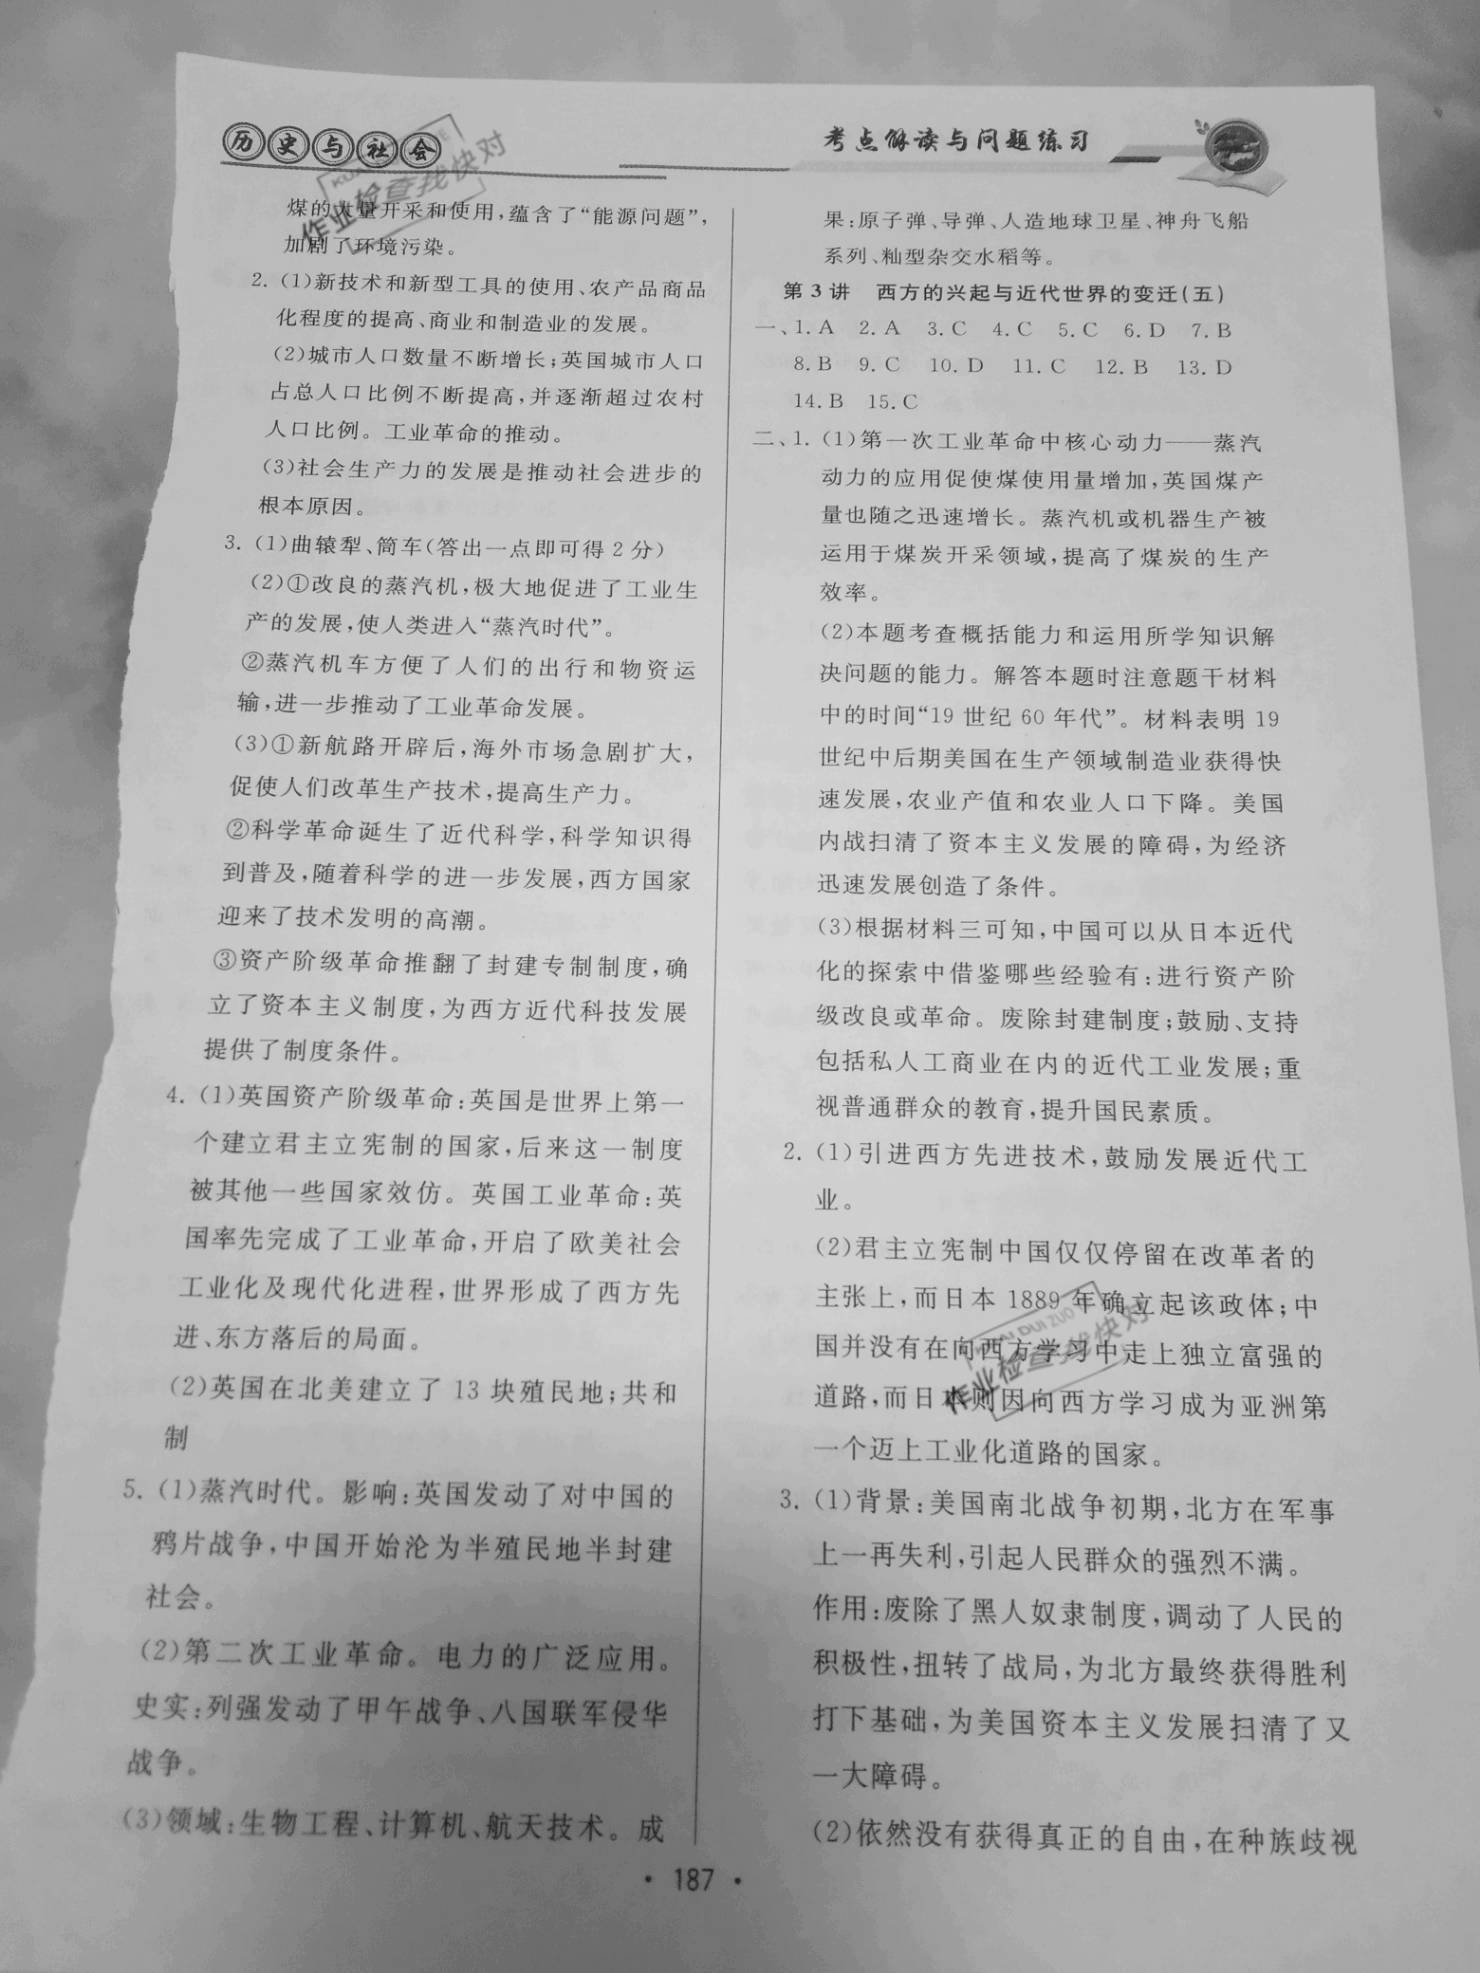 历史与社会
考点解读与问题练习
煤的大量开采和使用,蕴含了“能源问题”,
加剧了环境污染。
2. (1)新技术和新型工具的使用、农产品商品
化程度的提高、商业和制造业的发展。
(2)城市人口数量不断增长;英国城市人口
占总人口比例不断提高,并逐渐超过农村
人口比例。工业革命的推动。
(3)社会生产力的发展是推动社会进步的
根本原因。
3. (1)曲辕犁、筒车(答出一点即可得2分)
(2)①改良的蒸汽机,极大地促进了工业生
产的发展,使人类进入“蒸汽时代”。
②蒸汽机车方便了人们的出行和物资运
输,进一步推动了工业革命发展。
(3)①新航路开辟后,海外市场急剧扩大,
促使人们改革生产技术,提高生产力。
②科学革命诞生了近代科学,科学知识得
到普及,随着科学的进一步发展,西方国家
迎来了技术发明的高潮。
③资产阶级革命推翻了封建专制制度,确
立了资本主义制度,为西方近代科技发展
提供了制度条件。
4. (1)英国资产阶级革命:英国是世界上第一
个建立君主立宪制的国家,后来这一制度
被其他一些国家效仿。英国工业革命:英
国率先完成了工业革命,开启了欧美社会
工业化及现代化进程,世界形成了西方先
进、东方落后的局面。
(2)英国在北美建立了13块殖民地;共和
制
5. (1)蒸汽时代。影响:英国发动了对中国的
鸦片战争,中国开始沦为半殖民地半封建
社会。
(2)第二次工业革命。电力的广泛应用。
史实:列强发动了甲午战争、八国联军侵华
战争。
(3)领域:生物工程、计算机、航天技术。成
果:原子弹、导弹、人造地球卫星、神舟飞船
系列、籼型杂交水稻等。
第3讲 西方的兴起与近代世界的变迁(五)
一、1. A 2. A 3. C 4. C 5. C 6. D 7. B
8. B 9. C 10. D 11. C 12. B 13. D
14. B 15. C
二、1. (1)第一次工业革命中核心动力——蒸汽
动力的应用促使煤使用量增加,英国煤产
量也随之迅速增长。蒸汽机或机器生产被
运用于煤炭开采领域,提高了煤炭的生产
效率。
(2)本题考查概括能力和运用所学知识解
决问题的能力。解答本题时注意题干材料
中的时间“19世纪60年代”。材料表明19
世纪中后期美国在生产领域制造业获得快
速发展,农业产值和农业人口下降。美国
内战扫清了资本主义发展的障碍,为经济
迅速发展创造了条件。
(3)根据材料三可知,中国可以从日本近代
化的探索中借鉴哪些经验有:进行资产阶
级改良或革命。废除封建制度;鼓励、支持
包括私人工商业在内的近代工业发展;重
视普通群众的教育,提升国民素质。
2. (1)引进西方先进技术,鼓励发展近代工
业。
(2)君主立宪制中国仅仅停留在改革者的
主张上,而日本1889年确立起该政体;中
国并没有在向西方学习中走上独立富强的
道路,而日本则因向西方学习成为亚洲第
一个迈上工业化道路的国家。
3. (1)背景:美国南北战争初期,北方在军事
上一再失利,引起人民群众的强烈不满。
作用:废除了黑人奴隶制度,调动了人民的
积极性,扭转了战局,为北方最终获得胜利
打下基础,为美国资本主义发展扫清了又
一大障碍。
(2)依然没有获得真正的自由,在种族歧视
· 187 ·
作业检查找快对
作业检查找快对